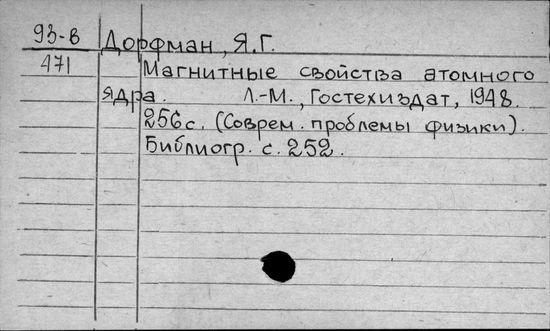 93-в Дорфман, Я.Г.
471 Магнитные свойства атомного
ядра. Л.-М., Гостехиздат, 1948.
256 с. (Соврем. проблемы физики).
Библиогр. с. 252.